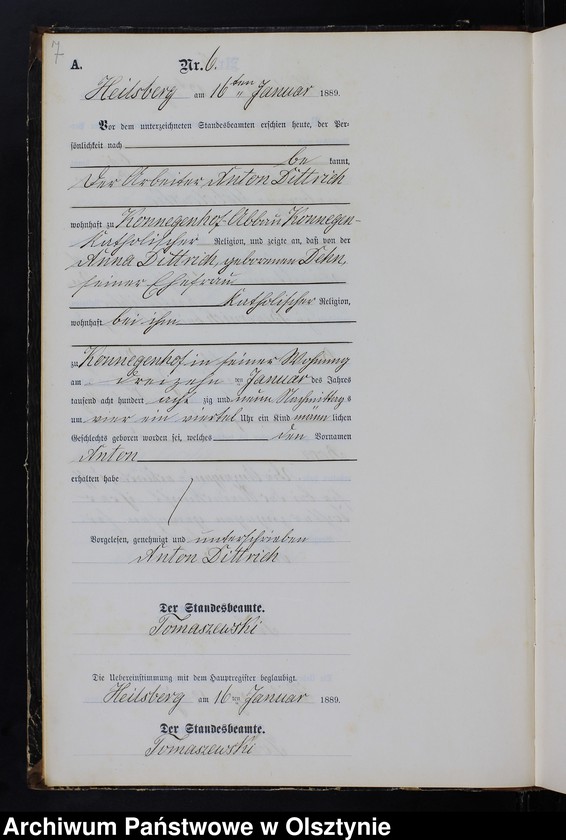 7
A. Nr. 6.
Heilsberg am 16ten Januar 1889.
Vor dem unterzeichneten Standesbeamten erschien heute, der Per-
sönlichkeit nach
be kannt,
Der Arbeiter Anton Dittrich
wohnhaft zu Konnegenhof-Abbau Konnegen-
Katholischer Religion, und zeigte an, daß von der
Anna Dittrich, geborenen Dehn,
seiner Ehefrau
Katholischer Religion,
wohnhaft bei ihm
zu Konnegenhof in seiner Wohnung
am dreizehn ten Januar des Jahres
tausend acht hundert acht zig und neun Nachmittag s
um vier ein viertel Uhr ein Kind männ lichen
Geschlechts geboren worden sei, welches den Vornamen
Anton
erhalten habe
Vorgelesen, genehmigt und unterschrieben
Anton Dittrich
Der Standesbeamte.
Tomaszewski
Die Uebereinstimmung mit dem Hauptregister beglaubigt.
Heilsberg am 16ten Januar 1889.
Der Standesbeamte.
Tomaszewski
Archiwum Państwowe w Olsztynie